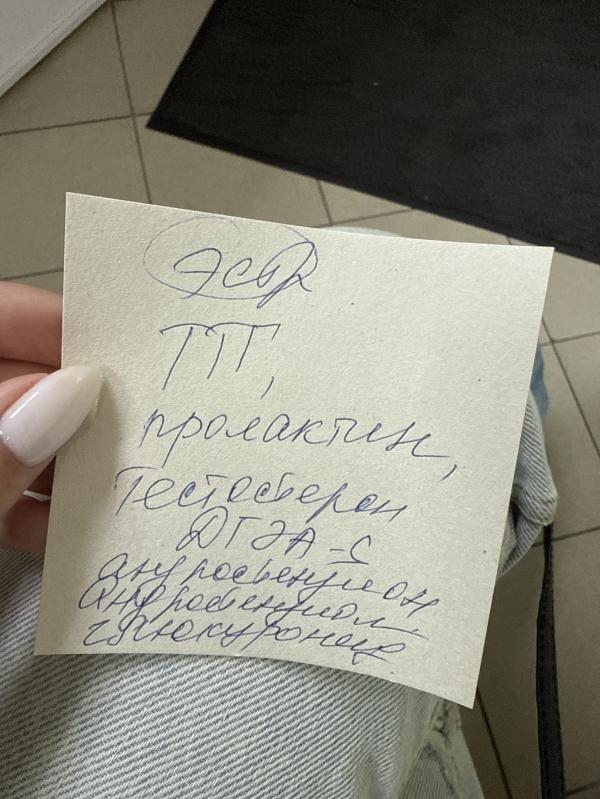 ТТГ,
пролактин,
Тестостерон
ДГЭА-С
андростендион
Андростендиол-
глюкуронид